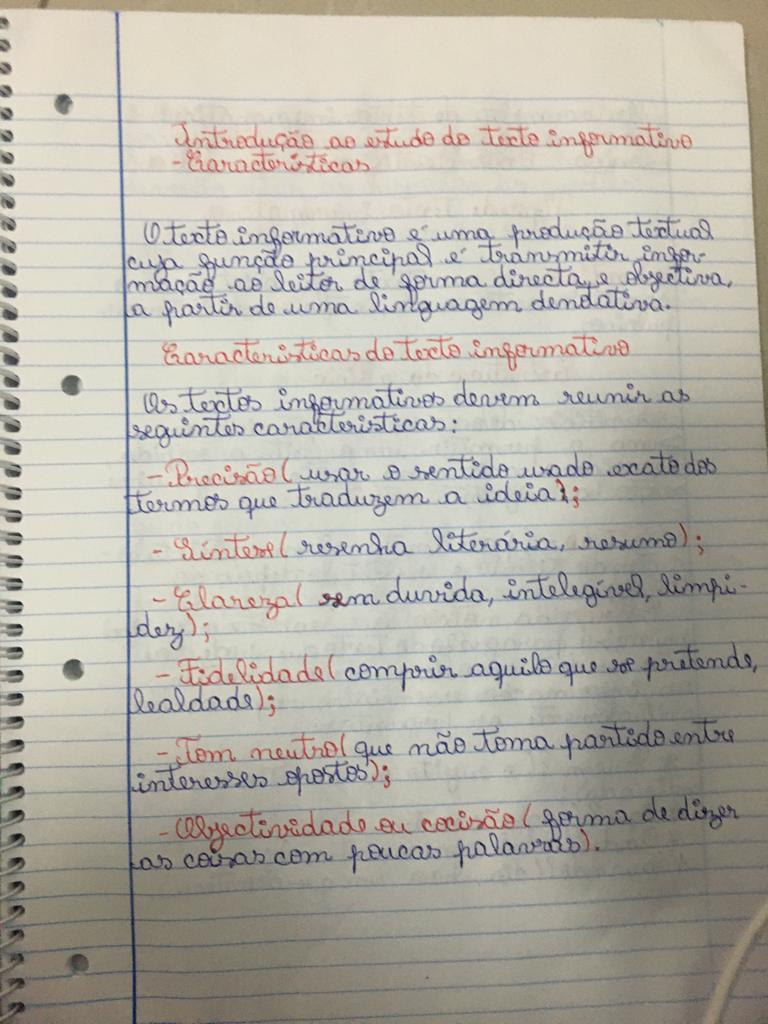 Introdução ao estudo do texto informativo
- Características
O texto informativo é uma produção textual
cuja função principal é transmitir infor-
mação ao leitor de forma directa, e objectiva,
a partir de uma linguagem dendativa.
Caracteristicas do texto informativo
Os textos informativos devem reunir as
seguintes caracteristicas:
- Precisão ( usar o sentido usado exato dos
termos que traduzem a ideia);
- Síntese ( resenha literária, resumo);
- Clareza ( sem duvida, intelegível, limpi-
dez);
- Fidelidade ( comprir aquilo que se pretende,
lealdade);
- Tom neutro ( que não toma partido entre
interesses opostos);
- Objectividade ou cocisão ( forma de dizer
as coisas com poucas palavras).